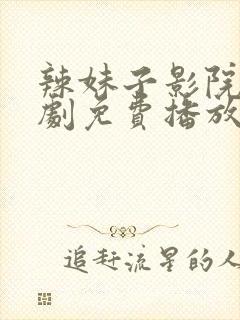 辣妹子影院
劇免費播放
追赶流星的人